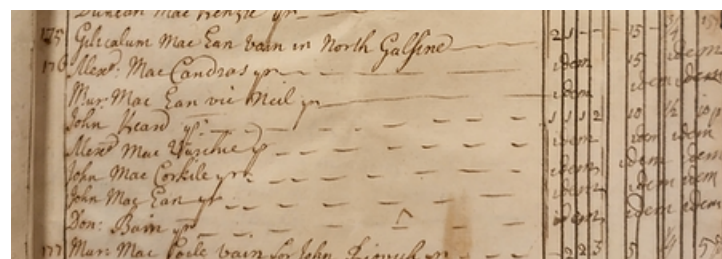 Duncan Mac Kenzie yr
175 Gilicalum Mac Ean vain in North Galsine 21 15
176 Alexr: Mac Candras yr idem 15 idem
Mur: Mac Ean vic Neil yr idem idem idem
John Heard yr 1112 10 ½
Alexr Mac yr idem idem idem
John Mac Corkile yr idem idem idem
John Mac Ean yr idem idem idem
Don: Bain yr idem idem idem
177 Mur: Mac vain for John yr 223 5 ¼ 5